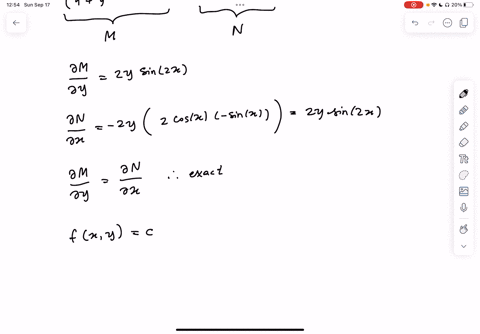 12:54 Sun Sep 17
20%
M
N
∂M/∂y = 2y sin(2x)
∂N/∂x = -2y ( 2 cos(x) (-sin(x)) ) = 2y sin(2x)
∂M/∂y = ∂N/∂x ∴ exact
f(x,y) = c